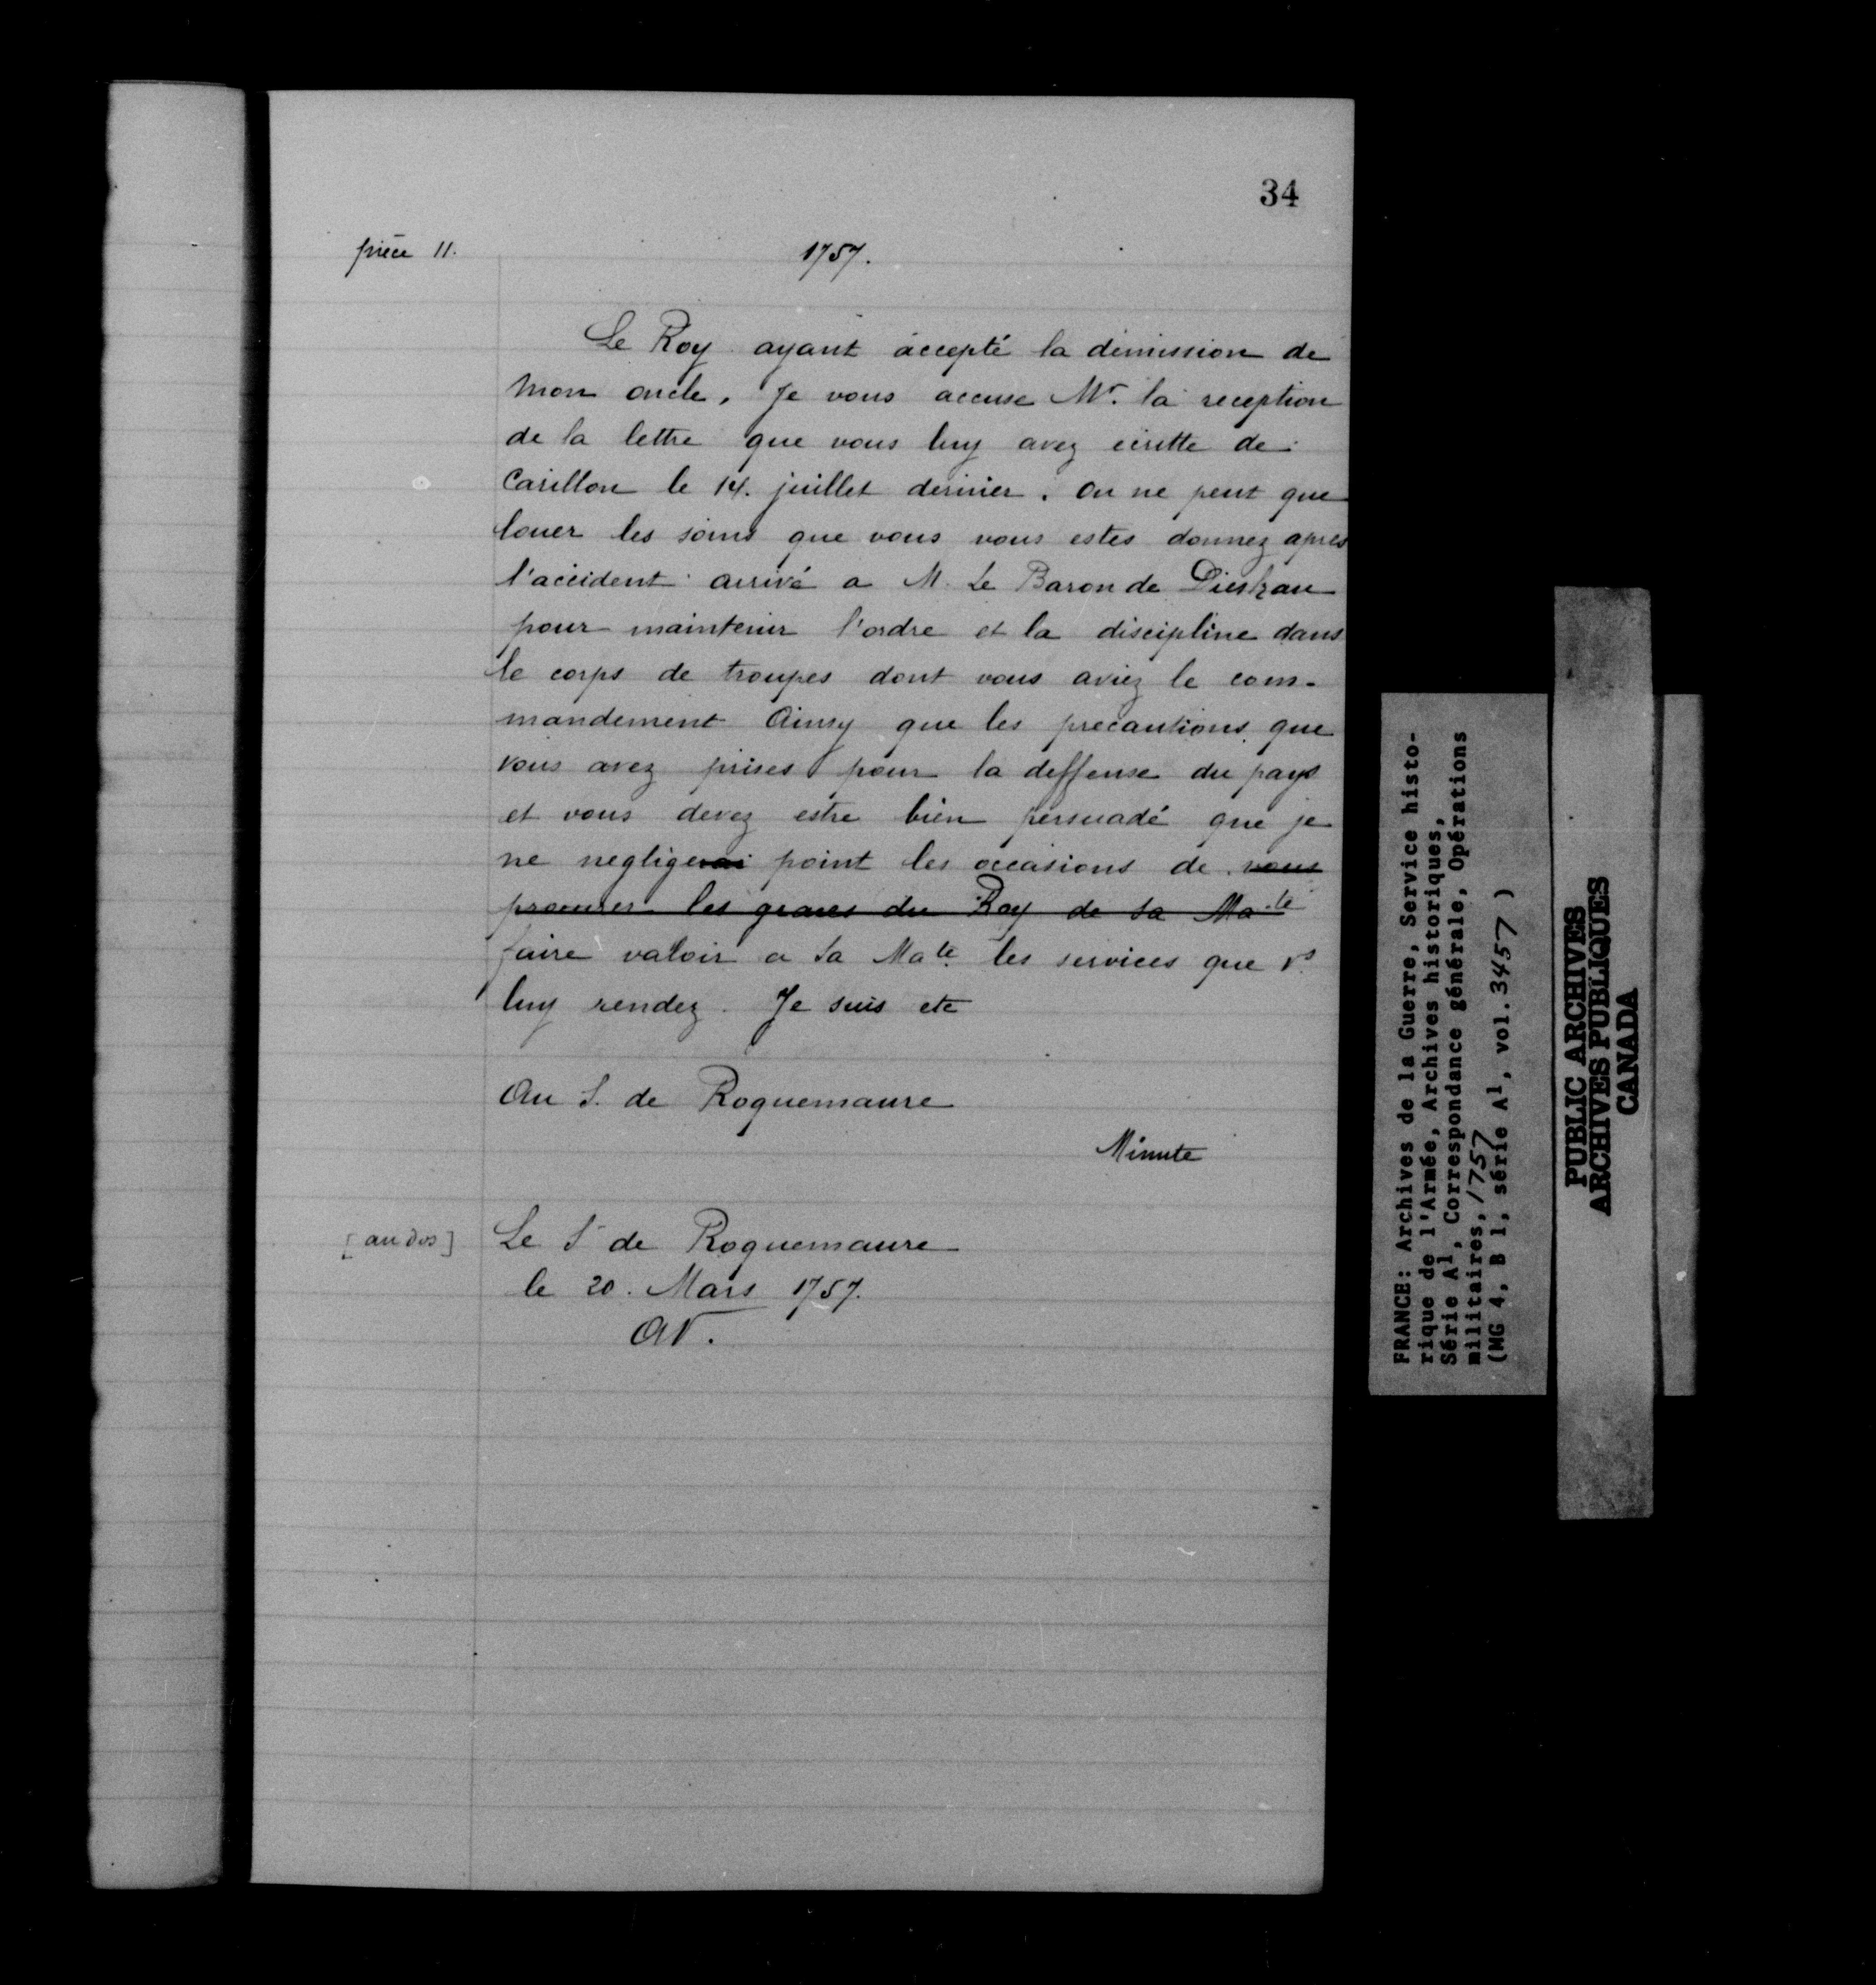 34
pièce 11.
1757.
Le Roy ayant accepté la démission de
mon oncle, Je vous accuse Mr. la reception
de la lettre que vous luy avez écritte de
Carillon le 14. juillet dernier. On ne peut que
louer les soins que vous vous estes donnez apres
l'accident arrivé a M. Le Baron de Dieskau
pour maintenir l'ordre et la discipline dans
le corps de troupes dont vous aviez le com-
mandement Ainsy que les precautions que
vous avez prises pour la deffense du pays
et vous devez estre bien persuadé que je
ne negligerai point les occasions de vous
procurer les graces du Roy de sa Maté
faire valoir a Sa Maté les services que vs
luy rendez. Je suis etc
Au S. de Roquemaure
Minute
[au dos]
Le S de Roquemaure
le 20. Mars 1757.
FRANCE: Archives de la Guerre, Service histo-
rique de l'Armée, Archives historiques,
Série A1, Correspondance générale, Opérations
militaires, 1757
(MG 4, B 1, série A1, vol. 3457)
PUBLIC ARCHIVES
ARCHIVES PUBLIQUES
CANADA